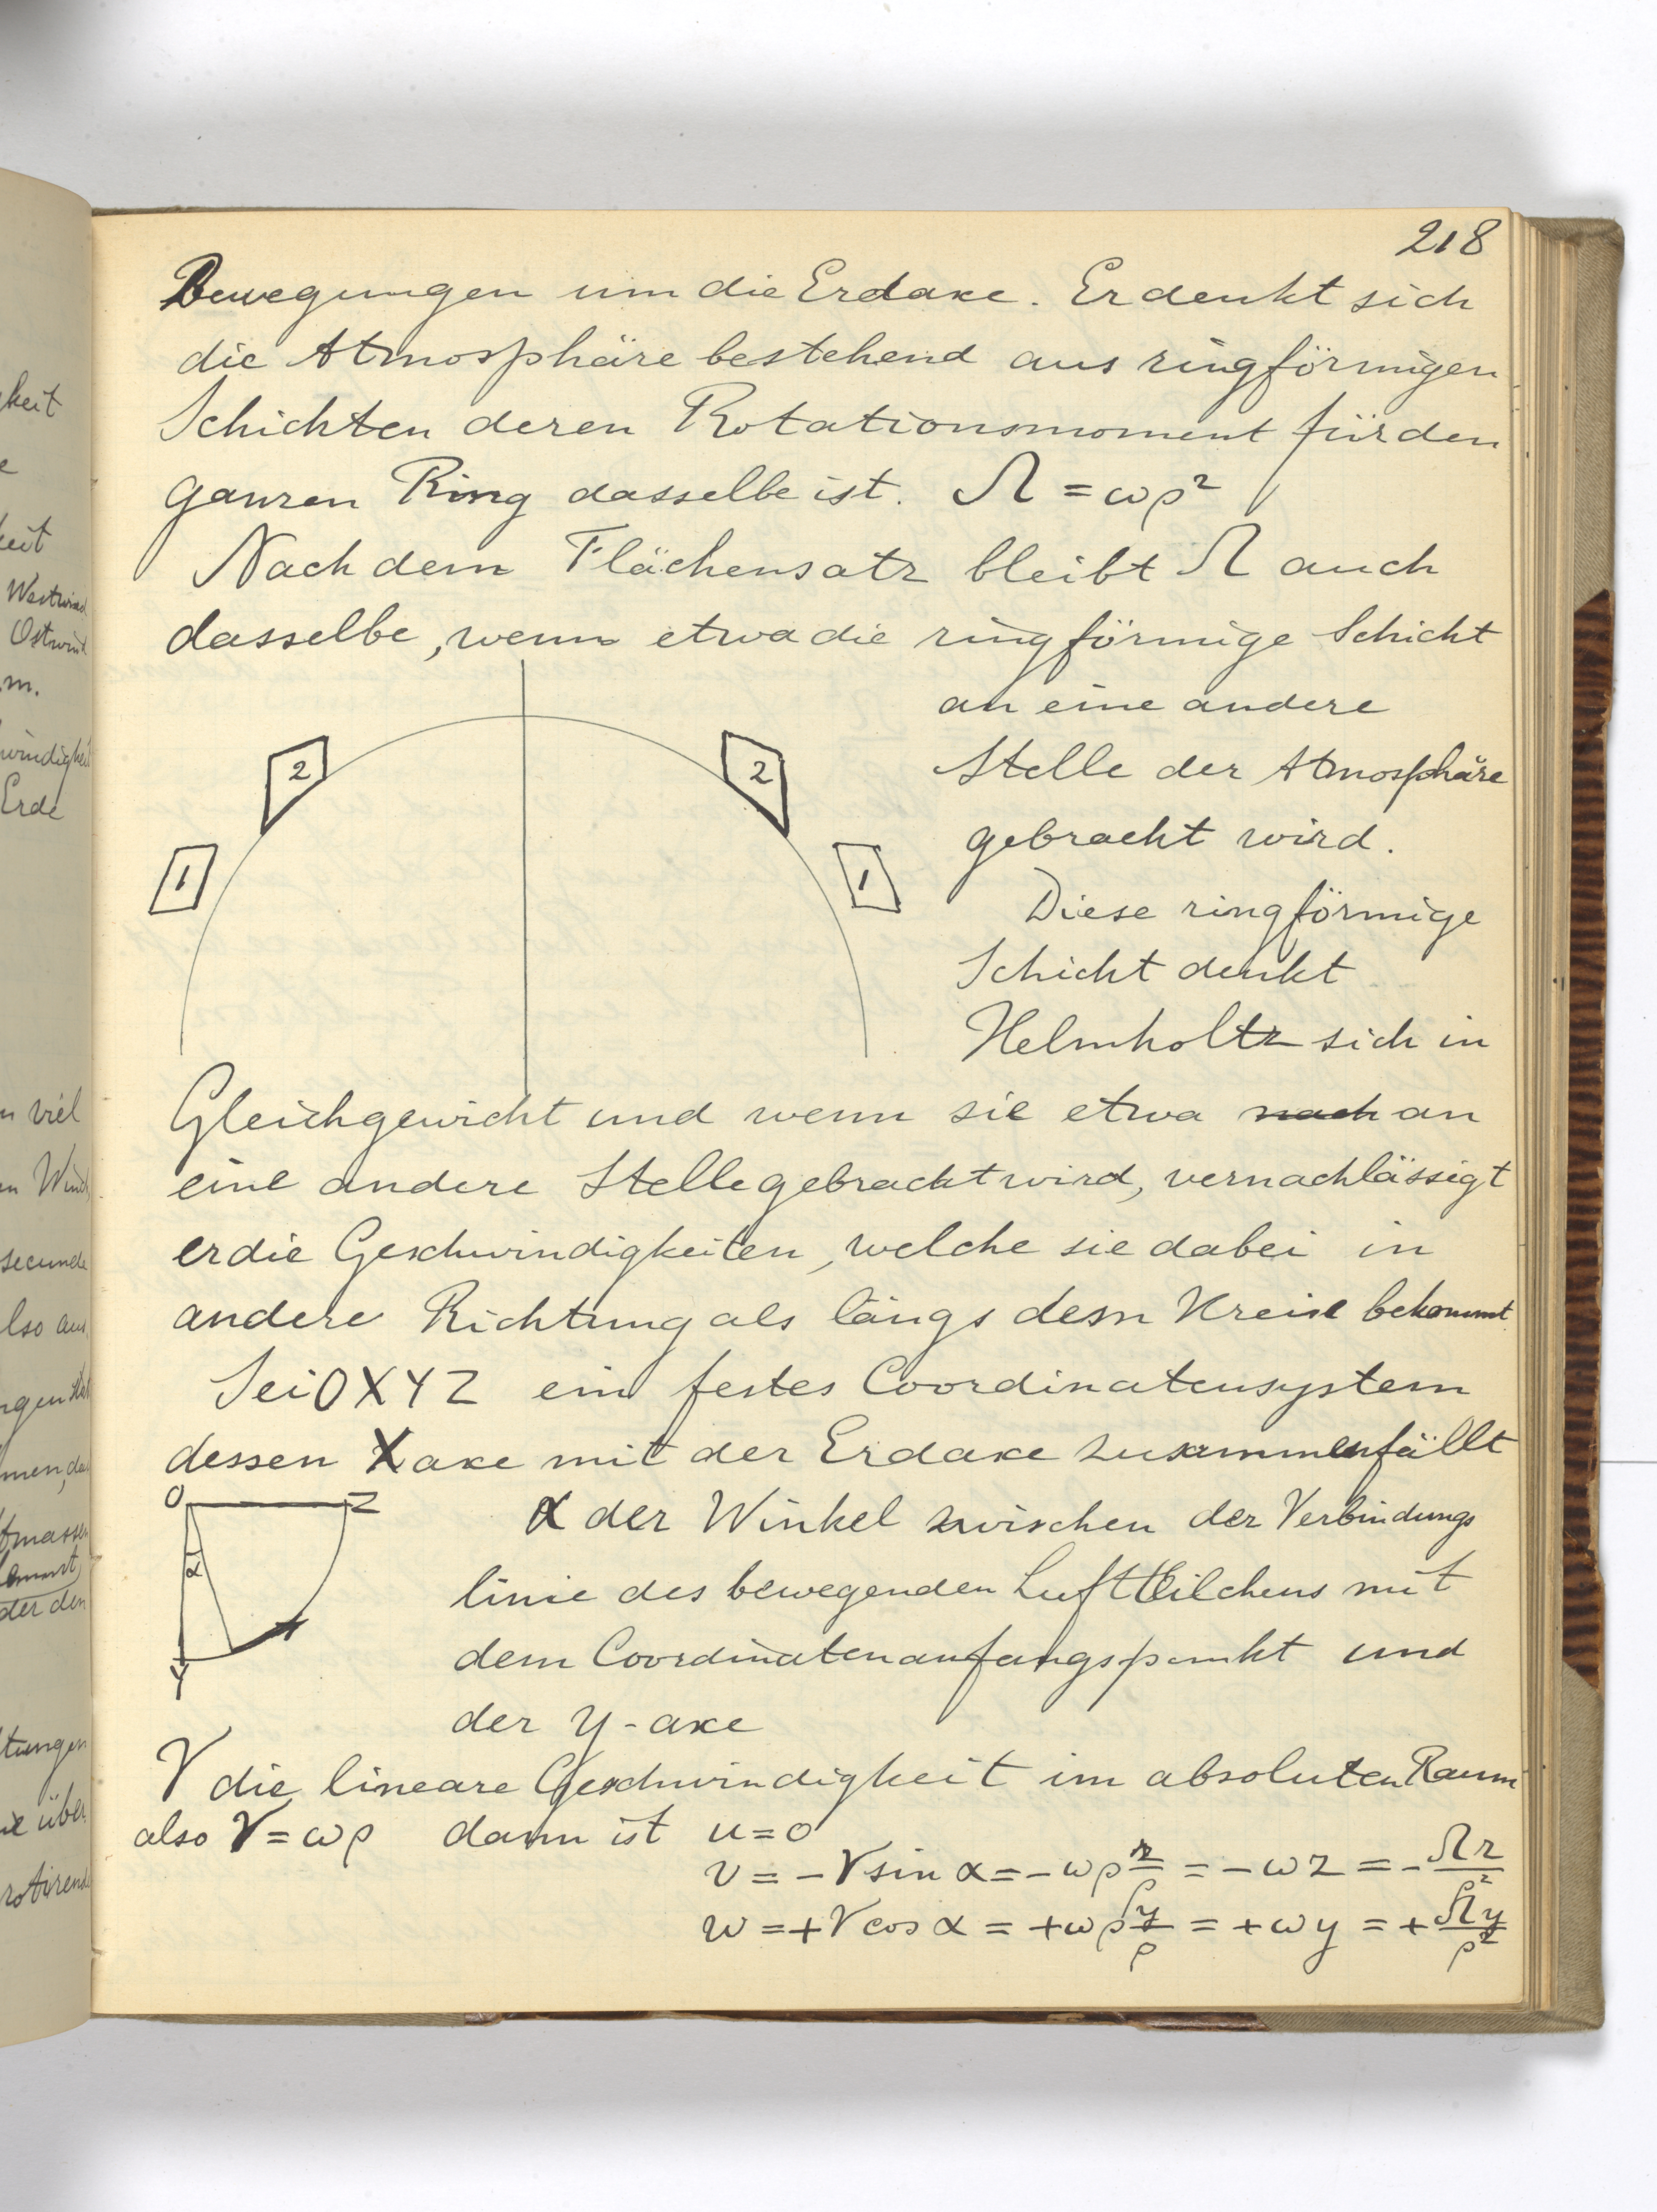 218
Bewegungen um die Erdaxe. Er denkt sich
die Atmosphäre bestehend aus ringförmigen
Schichten deren Rotationsmoment für den
ganzen Ring dasselbe ist. Ω = ωρ²
Nach dem Flächensatz bleibt Ω auch
dasselbe, wenn etwa die ringförmige Schicht
an eine andere
Stelle der Atmosphäre
gebracht wird.
Diese ringförmige
Schicht denkt
Helmholtz sich in
2 2
1 1
Gleichgewicht und wenn sie etwa nach an
eine andere Stelle gebracht wird, vernachlässigt
er die Geschwindigkeiten, welche sie dabei in
andere Richtung als längs dem Kreise bekommt
Sei OXYZ ein festes Coordinatensystem
dessen X axe mit der Erdaxe zusammenfällt
O Z
α
Y
α der Winkel zwischen der Verbindungs
linie des bewegenden Luftteilchens mit
dem Coordinatenanfangspunkt und
der y-axe
V die lineare Geschwindigkeit im absoluten Raum
also V = ωρ dann ist u = 0
v = -V sin α = -ωρ z/ρ = -ωz = -Ωz/ρ²
w = +V cos α = +ωρ y/ρ = +ωy = +Ωy/ρ²
keit
e
keit
Westwind
Ostwind
m.
windigkeit
Erde
n viel
n Wind
secunde
lso aus
men, da
tmassen
der den
tungen
ie über
rotirend